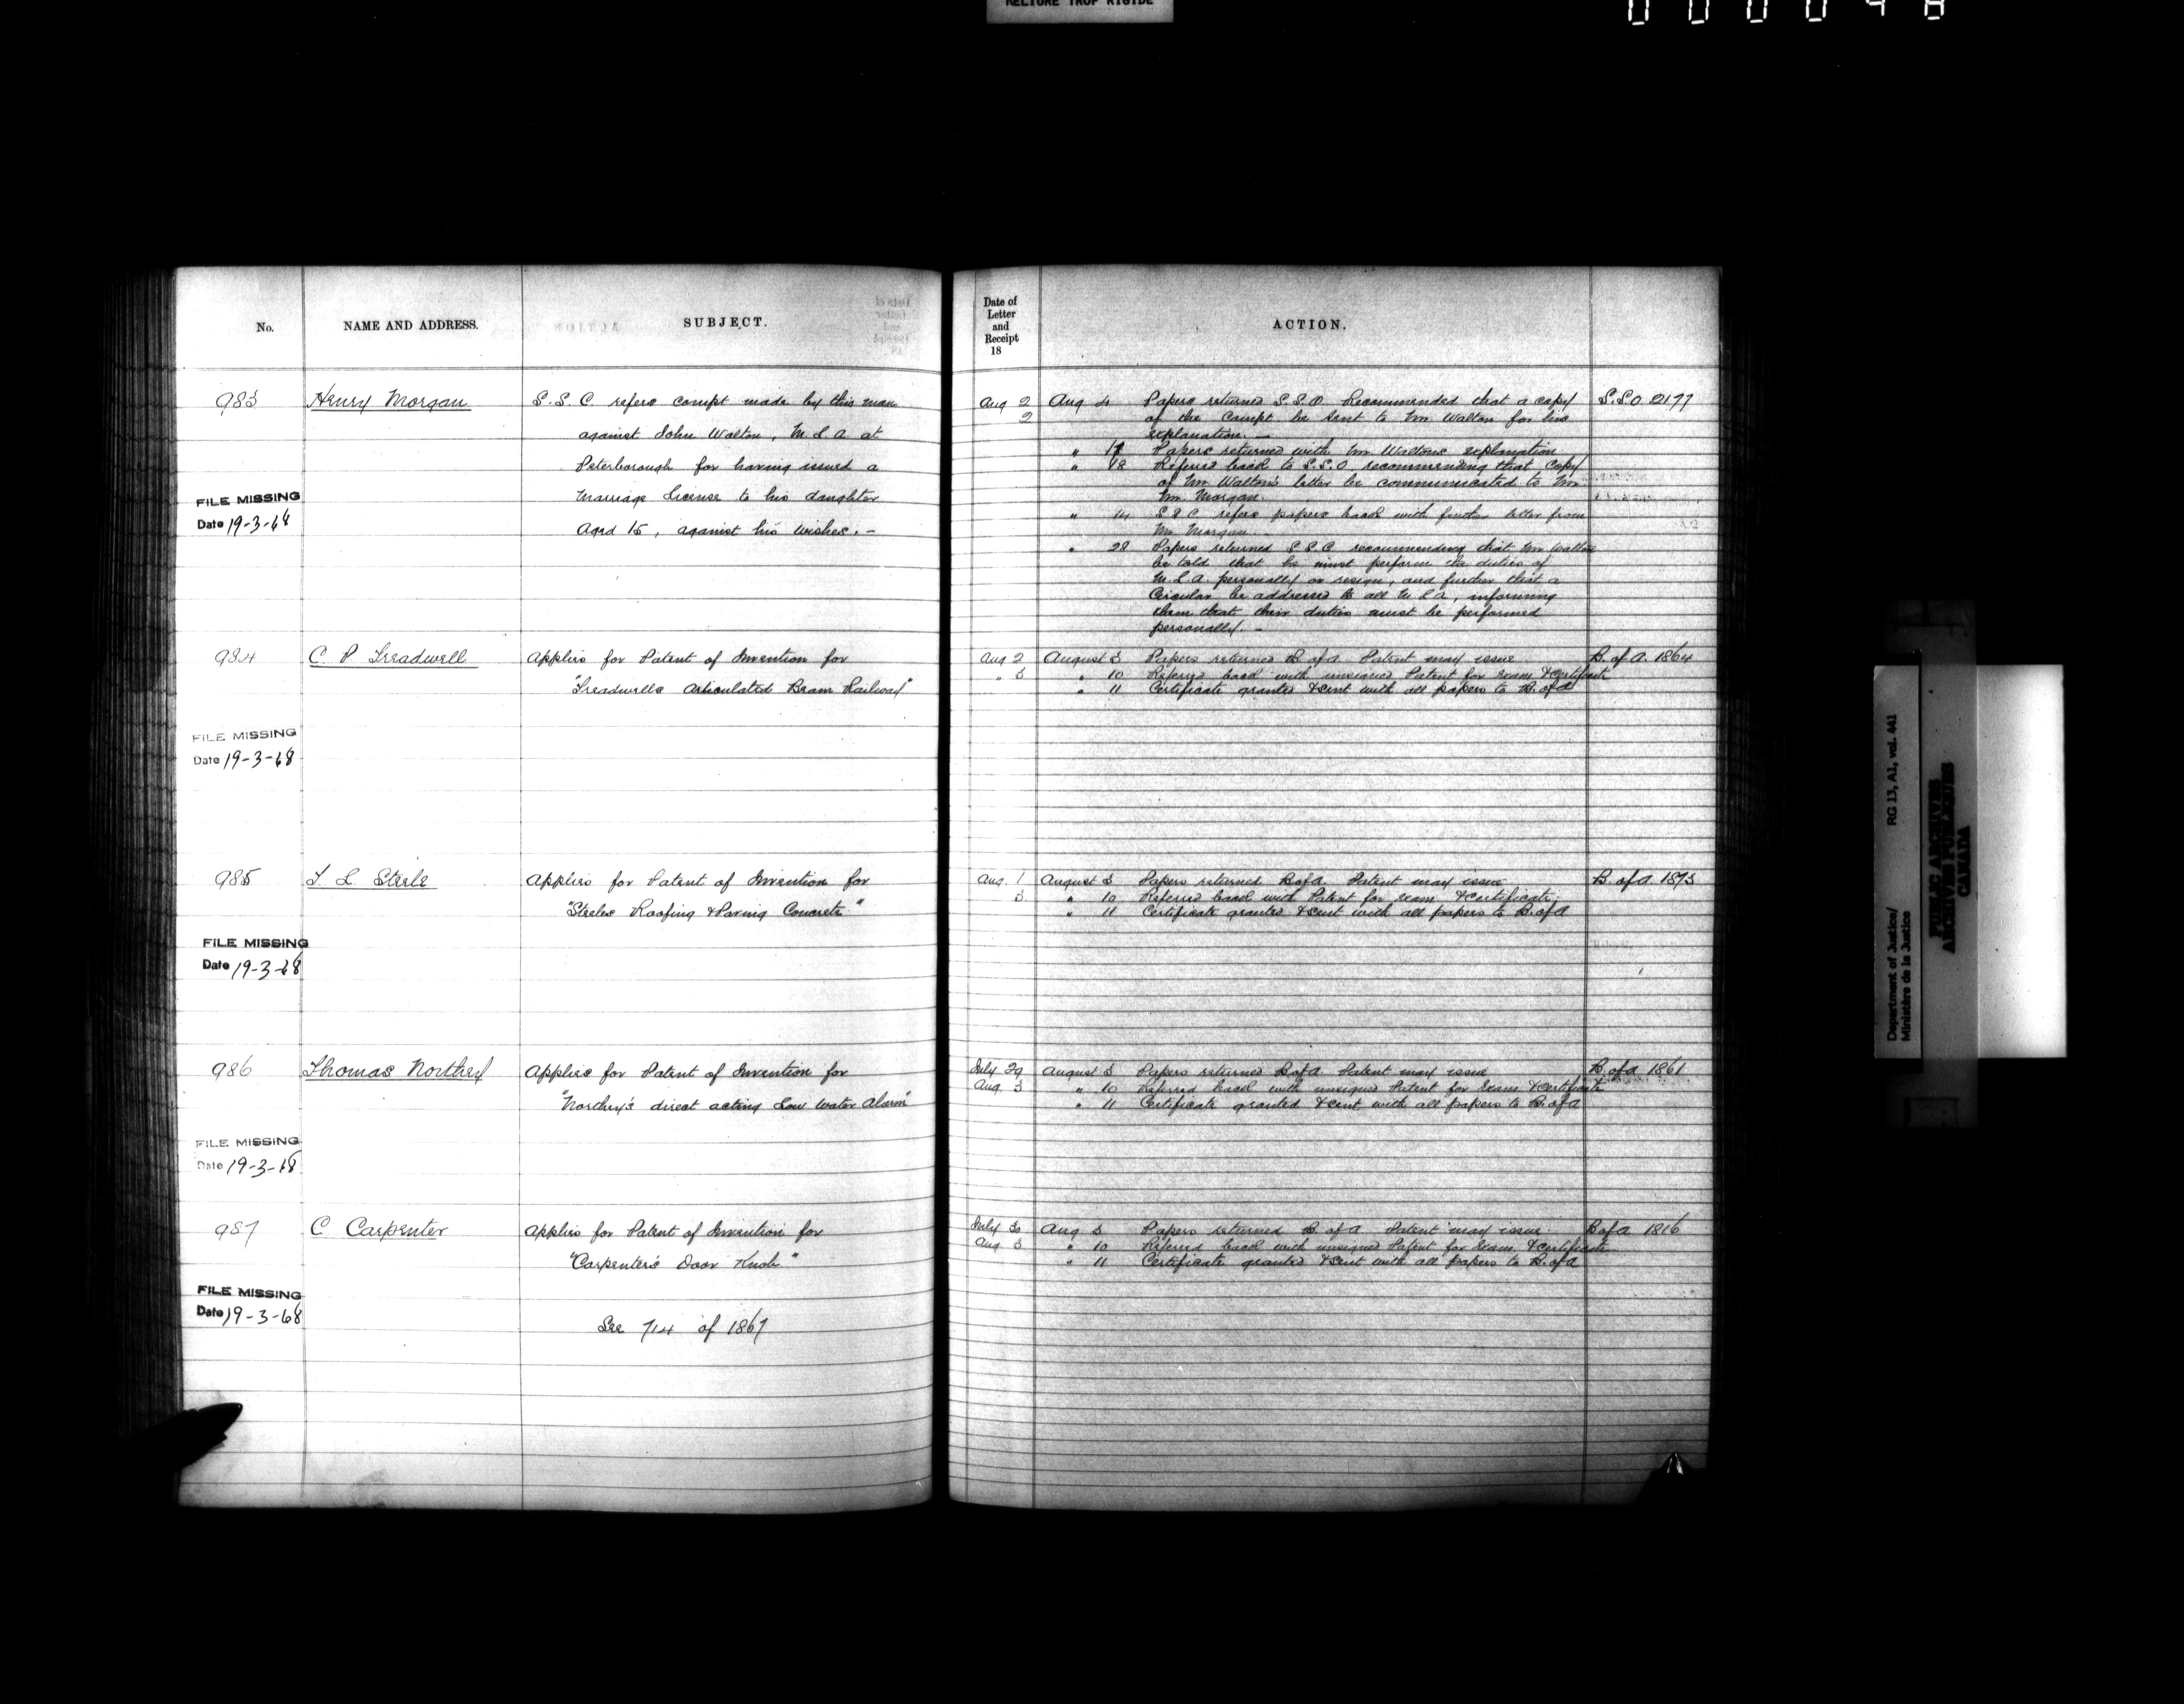 RELIURE TROP RIGIDE
No.
NAME AND ADDRESS.
SUBJECT.
983
Henry Morgan
S. S. C. refers compt made by this man
against John Walton, M. L. A. at
Peterborough for having issued a
Marriage License to his daughter
Aged 15, against his wishes. —
FILE MISSING
Date 19-3-68
984
C P Treadwell
Applies for Patent of Invention for
"Treadwells Articulated Beam Railway"
FILE MISSING
Date 19-3-68
985
T. L. Steele
Applies for Patent of Invention for
"Steeles Roofing & Paving Concrete"
FILE MISSING
Date 19-3-68
986
Thomas Northey
Applies for Patent of Invention for
"Northey's direct acting Low Water Alarm"
FILE MISSING
Date 19-3-68
987
C Carpenter
Applies for Patent of Invention for
"Carpenter's Door Knob"
FILE MISSING
Date 19-3-68
See 714 of 1867
Date of
Letter
and
Receipt
18
ACTION.
Aug 2
2
Aug 4 Papers returned S.S.O. Recommended that a copy S.S.O 2177
of the Compt. be sent to Mr. Walton for his
explanation. —
" Papers returned with Mr. Waltons explanation
" 18 Referred back to S.S.O, recommending that Copy
of Mr Walton's letter be communicated to Mr.
Mr. Morgan.
" 14 S S C refers papers back with further letter from
Mr Morgan. —
" 28 Papers returned S S C recommending that Mr Walton
be told that he must perform the duties of
M. L. A. personally or resign, and further that a
Circular be addressed to all M L A, informing
them that their duties must be performed
personally. —
Aug 2 August 3 Papers returned B of A Patent may issue B. of A. 1864
" 3 " 10 Referred back with unsigned Patent for Exam & Certificate
" 11 Certificate granted & sent with all papers to B. of A
Aug. 1 August 3 Papers returned B of A. Patent may issue B. of A 1873
3 " 10 Referred back with Patent for Exam. & Certificate.
" 11 Certificate granted & sent with all papers to B. of A
July 29 August 3 Papers returned B of A Patent may issue B of A 1861
Aug. 3 " 10 Referred back with unsigned Patent for Exam & Certificate
" 11 Certificate granted & sent with all papers to B. of A
July 30 Aug 3 Papers returned B. of A Patent may issue. B of A 1816
Aug 3 " 10 Referred back with unsigned Patent for Exam. & Certificate
" 11 Certificate granted & sent with all papers to B. of A
Department of Justice/ RG 13, A1, vol. 441
Ministère de la Justice
PUBLIC ARCHIVES
ARCHIVES PUBLIQUES
CANADA